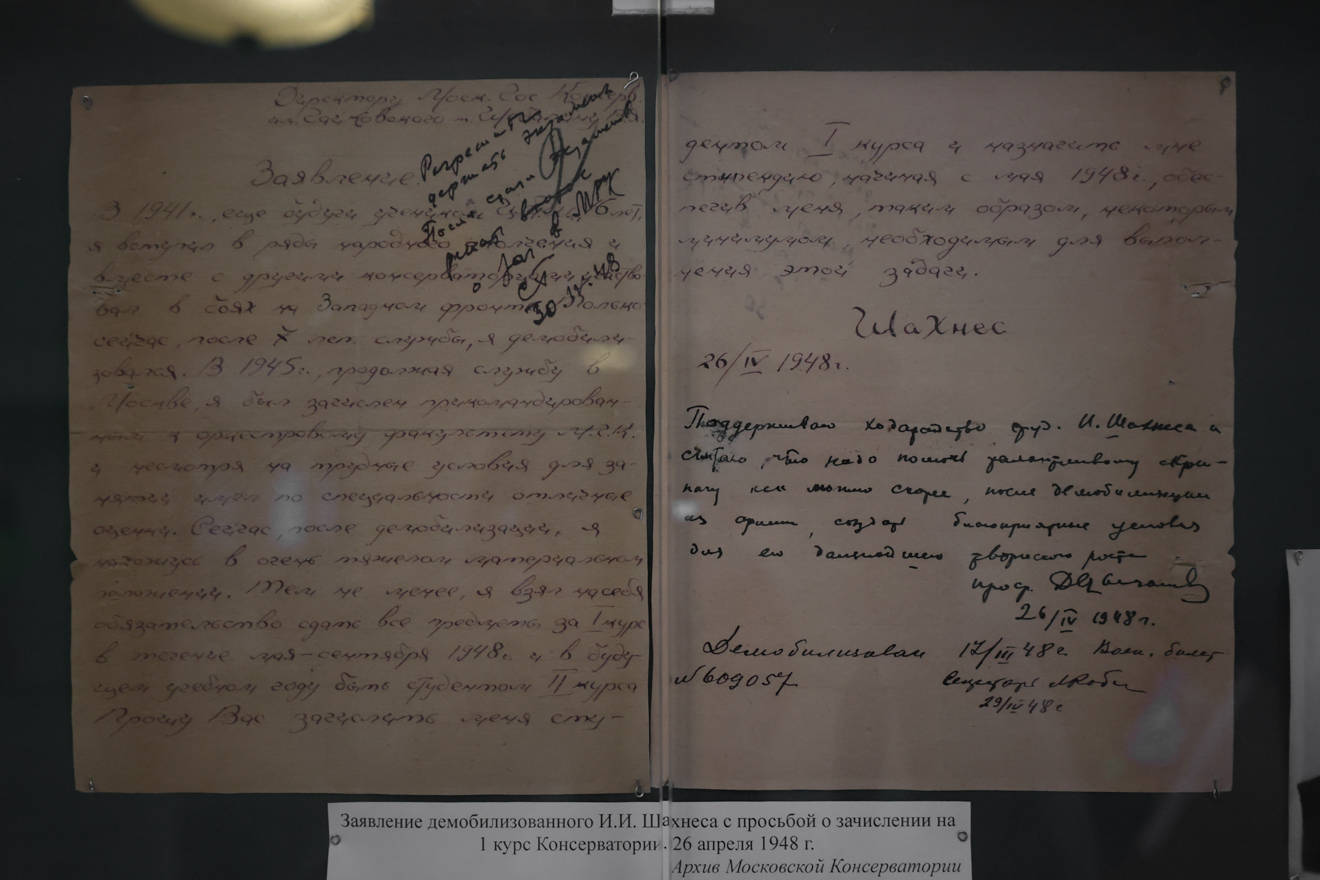 Директору Моск. Гос. Консерв.
им. Чайковского т.
Заявление.
Разрешить
держать экзамены
После сдачи
в МГК
30 IV. 48
В 1941г., еще будучи учеником
я вступил в ряды народного ополчения и
вместе с другими консерваторцами участво-
вал в боях на Западном фронте. Только
сейчас, после 7 лет. службы, я демобили-
зовался. В 1945г., продолжая службу в
Москве, я был зачислен прикомандирован-
ным к оркестровому факультету М.Г.К.
и несмотря на трудные условия для за-
нятий имел по специальности отличные
оценки. Сейчас, после демобилизации, я
нахожусь в очень тяжелом материальном
положении. Тем не менее, я взял на себя
обязательство сдать все предметы за I курс
в течение мая-сентября 1948г. и в буду-
щем учебном году быть студентом II курса
Прошу Вас зачислить меня сту-
дентом I курса и назначить мне
стипендию, начиная с мая 1948г., обес-
печив меня, таким образом, некоторым
минимумом, необходимым для выпол-
нения этой задачи.
Шахнес
26/IV 1948г.
Поддерживаю ходатайство студ. И. Шахнеса и
считаю, что надо помочь талантливому скри-
пачу как можно скорее, после демобилизации
из армии, создать благоприятные условия
для его дальнейшего творческого роста
проф. Д Цыганов
26/IV 1948г.
Демобилизован 17/III 48г. Воен. билет
№609057
Секретарь
29/IV 48г
Заявление демобилизованного И.И. Шахнеса с просьбой о зачислении на
1 курс Консерватории. 26 апреля 1948 г.
Архив Московской Консерватории